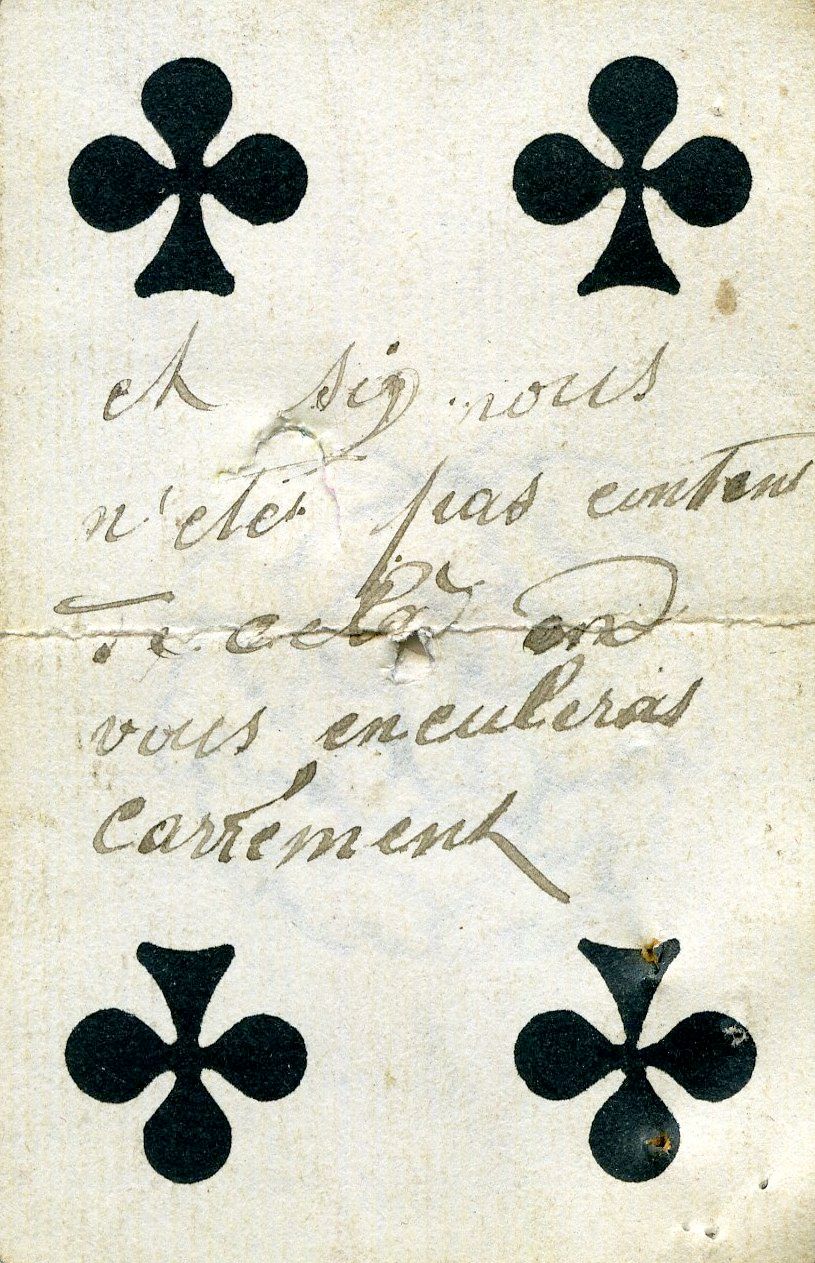 et sig nous
n'etes pas contens
de cela on
vous enculeras
carrément